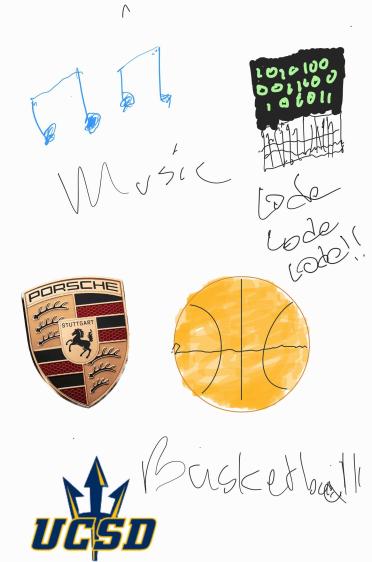 1010100
Music
Code
code
code!!
PORSCHE
STUTTGART
Basketball
UCSD